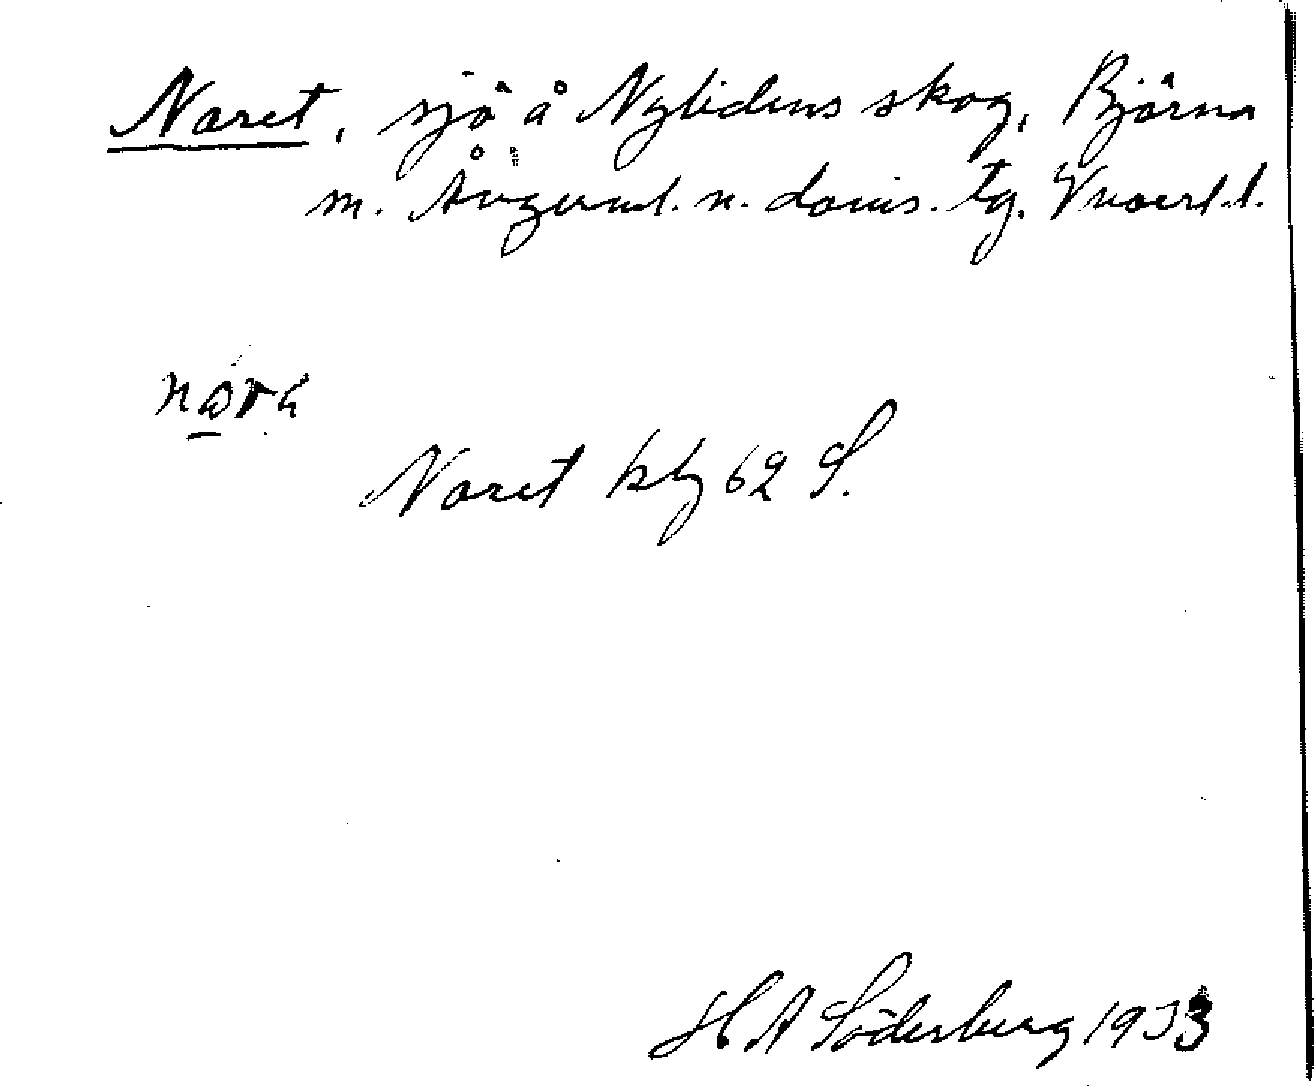 Naret, sjö å Nylidens skog, Björna
m. Ångerml. n. doms. tg. Vnorrl.l.
nara
Naret ktg 62 S.
H A Söderberg 1933